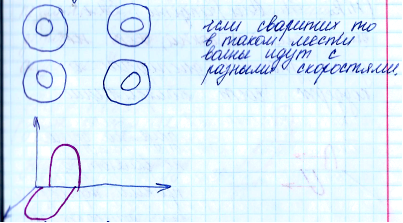 если сварить их то
в таком месте
волны идут с
разными скоростями.